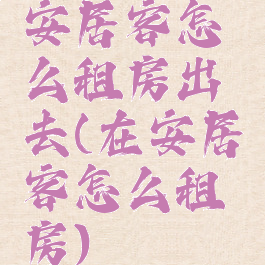 安居客怎
么租房出
去(在安居
客怎么租
房)